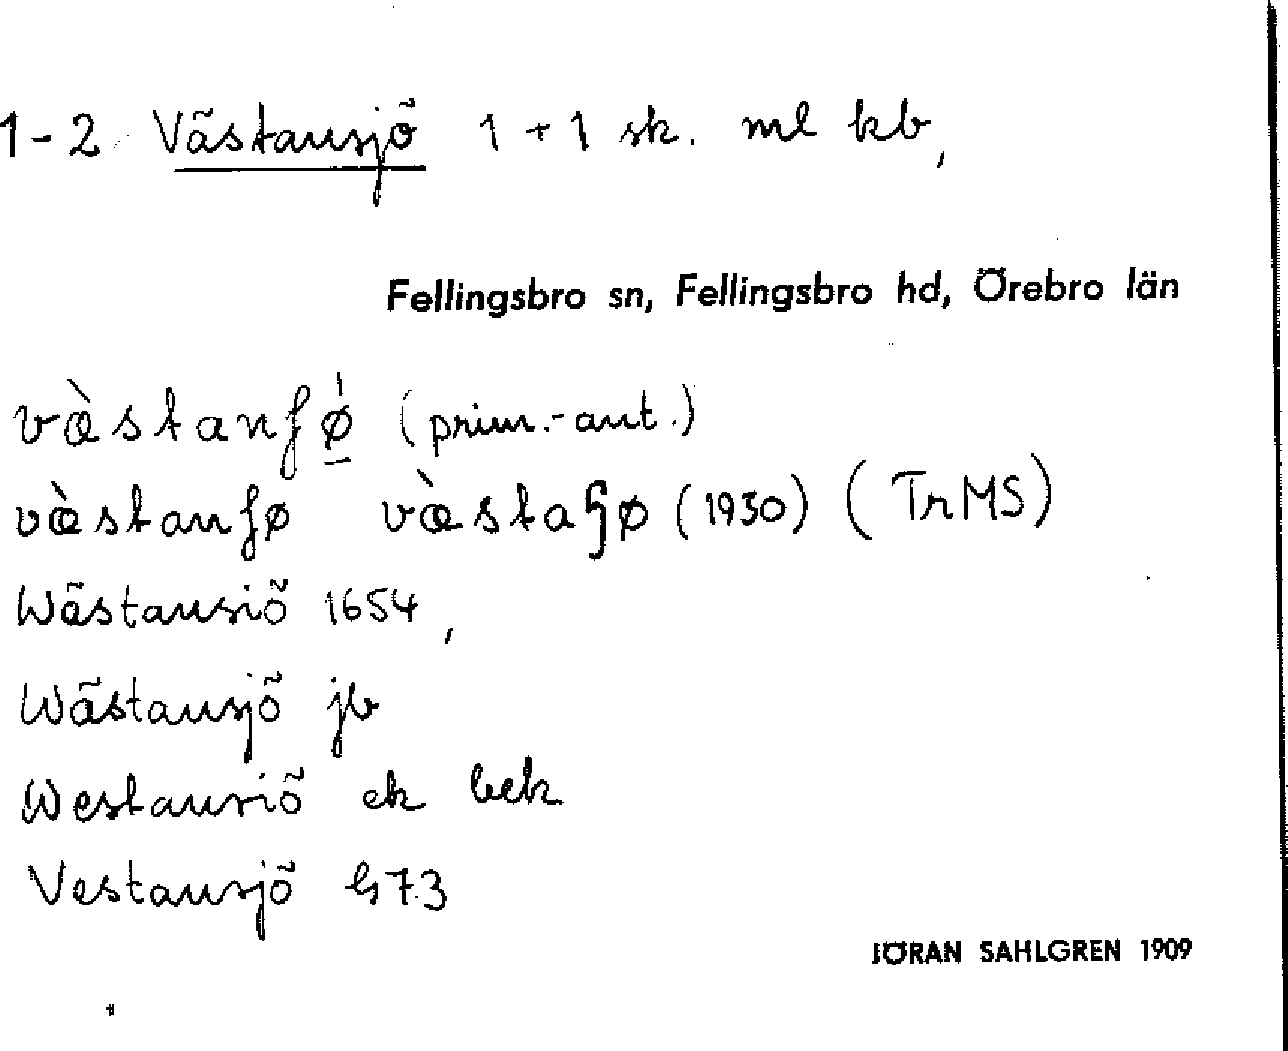 1-2 Västansjö 1+1 sk. ml kb,
Fellingsbro sn, Fellingsbro hd, Örebro län
væ̀stanʃǿ (prim.-ant.)
væ̀stanʃø væ̀staʃø (1930) (TrMS)
Wästansiö 1654,
Wästansjö jb
Westansiö ek bek
Vestansjö h73
JÖRAN SAHLGREN 1909